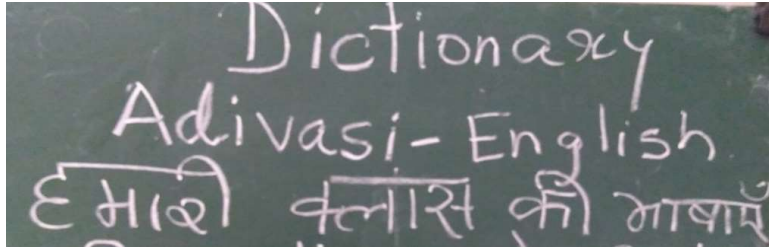 Dictionary
Adivasi - English
हमारी क्लास की भाषाएँ